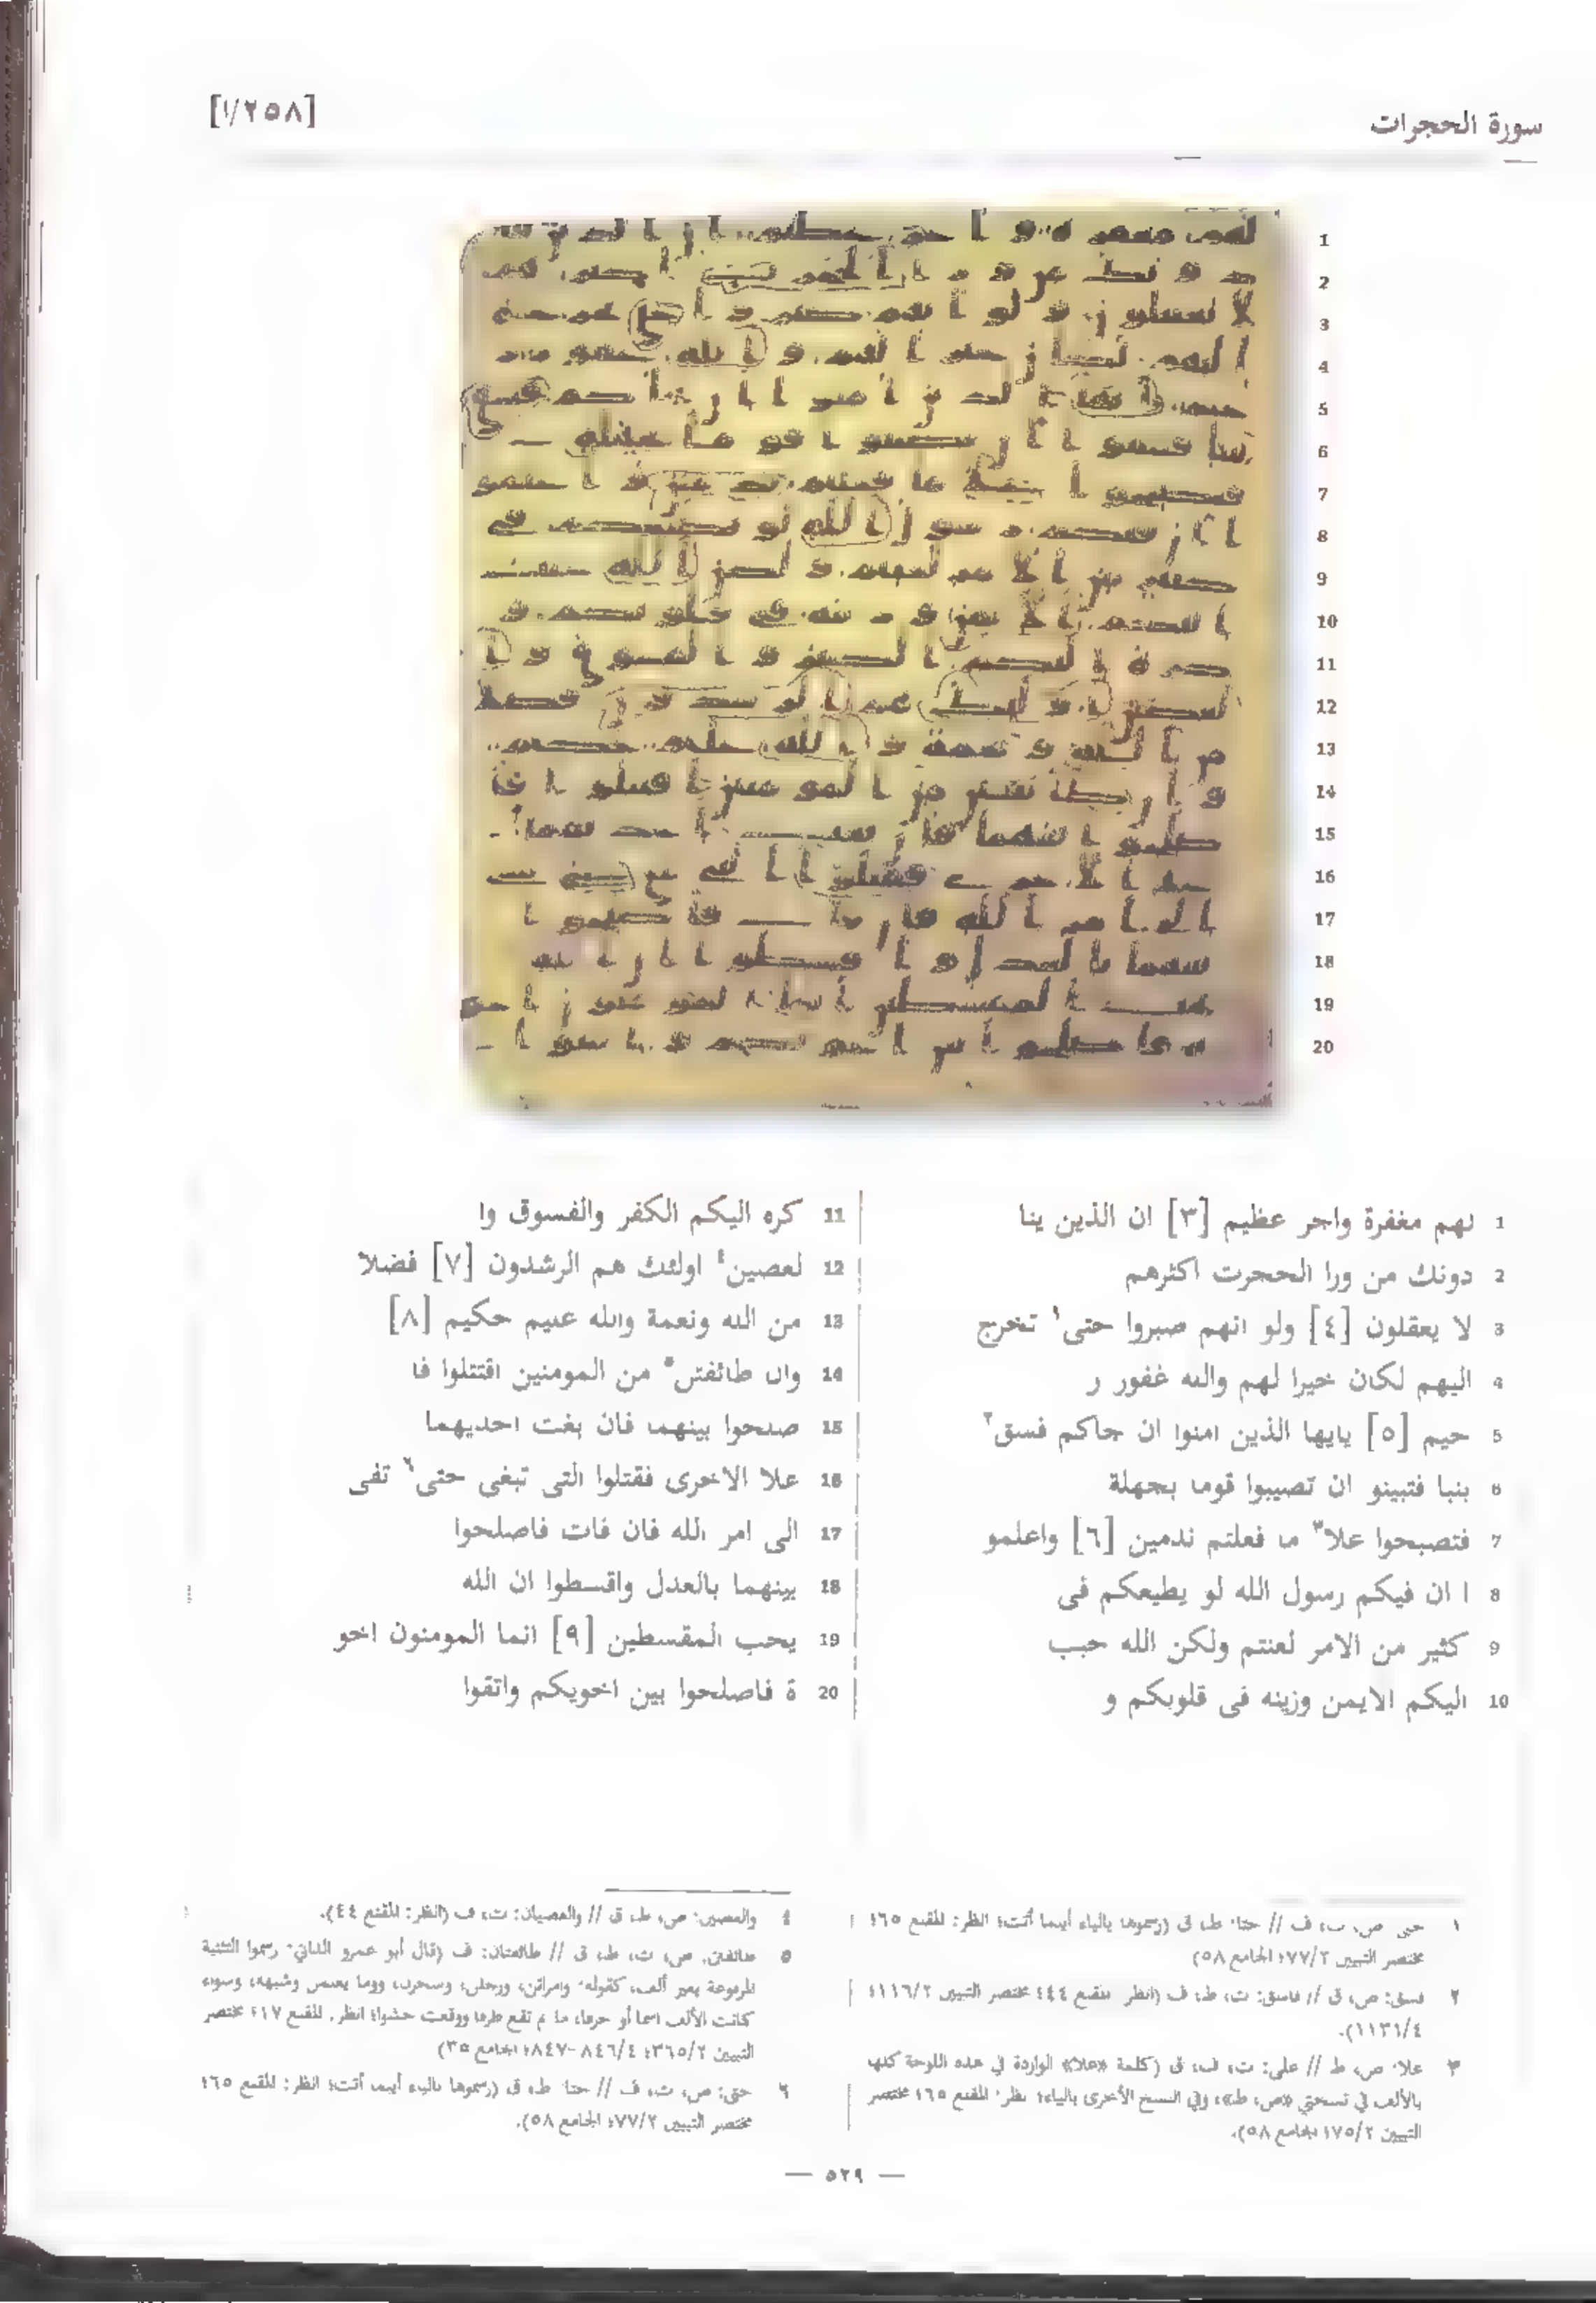 سورة الحجرات
[٢٥٨/ا]
1 لهم مغفرة واجر عظيم [٣] ان الذين ينا
2 دونك من ورا الحجرت اكثرهم
3 لا يعقلون [٤] ولو انهم صبروا حتى١ تخرج
4 اليهم لكان خيرا لهم والله غفور ر
5 حيم [٥] يايها الذين امنوا ان جاكم فسق٢
6 بنبا فتبينو ان تصيبوا قوما بجهلة
7 فتصبحوا علا٣ ما فعلتم ندمين [٦] واعلمو
8 ا ان فيكم رسول الله لو يطيعكم فى
9 كثير من الامر لعنتم ولكن الله حبب
10 اليكم الايمن وزينه فى قلوبكم و
11 كره اليكم الكفر والفسوق وا
12 لعصين٤ اولئك هم الرشدون [٧] فضلا
13 من الله ونعمة والله عليم حكيم [٨]
14 وان طائفتن٥ من المومنين اقتتلوا فا
15 صلحوا بينهما فان بغت احديهما
16 علا الاخرى فقتلوا التى تبغى حتى٦ تفى
17 الى امر الله فان فات فاصلحوا
18 بينهما بالعدل واقسطوا ان الله
19 يحب المقسطين [٩] انما المومنون اخو
20 ة فاصلحوا بين اخويكم واتقوا
١ حتى ص، ت، ف // حتا: ط، ق (رسموها بالياء أينما أتت؛ انظر: المقنع ٦٥؛
مختصر التبيين ٧٧/٢؛ الجامع ٥٨)
٢ فسق: ص، ق // فاسق: ت، ط، ف (انظر المقنع ٤٤؛ مختصر التبيين ١١١٦/٢؛
١١٣١/٤).
٣ علا: ص، ط // على: ت، ف، ق (كلمة «علا» الواردة في هذه اللوحة كلها
بالألف في نسختي «ص، ط»، وفي النسخ الأخرى بالياء؛ انظر: المقنع ٦٥؛ مختصر
التبيين ٧٥/٢؛ الجامع ٥٨).
4 والعصين: ص، ط، ق // والعصيان: ت، ف (انظر: المقنع ٤٤).
٥ طائفتن: ص، ت، ط، ق // طائفتان: ف (قال أبو عمرو الداني: رسموا التثنية
المرفوعة بغير ألف، كقوله: وامراتن، ورجلن، وسحرن، وما يعلمن وشبهه، وسواء
كانت الألف اسما أو حرفا، ما لم تقع طرفا ووقعت حشوا؛ انظر: المقنع ١٧؛ مختصر
التبيين ٣٦٥/٢؛ ٨٤٦/٤-٨٤٧؛ الجامع ٣٥)
٦ حتى: ص، ت، ف // حتا: ط، ق (رسموها بالياء أينما أتت؛ انظر: المقنع ٦٥؛
مختصر التبيين ٧٧/٢؛ الجامع ٥٨).
— ٥٢٩ —